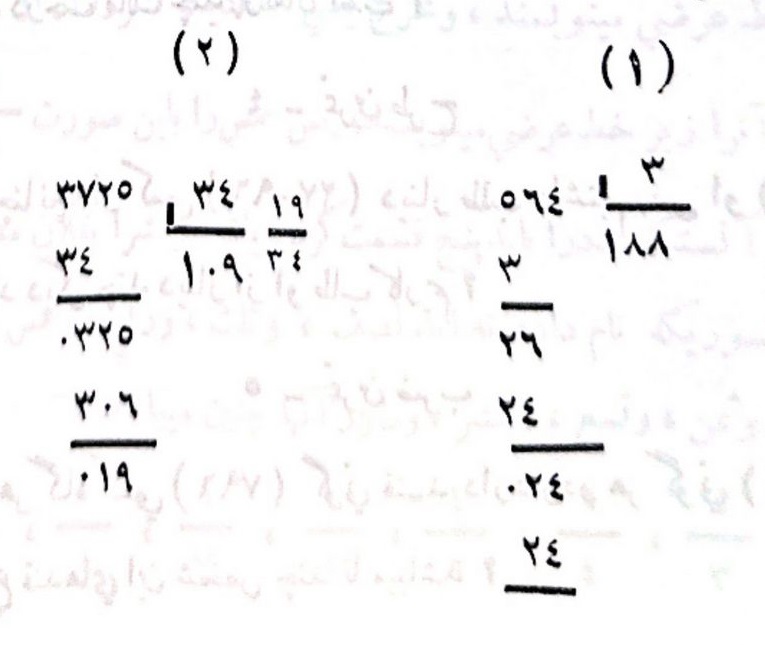 (١)
٣
٥٦٤
١٨٨
٣
٢٦
٢٤
٠٢٤
٢٤
(٢)
٣٧٢٥ ٣٤ ١٩
٣٤ ١٠٩ ٣٤
٠٣٢٥
٣٠٦
٠١٩